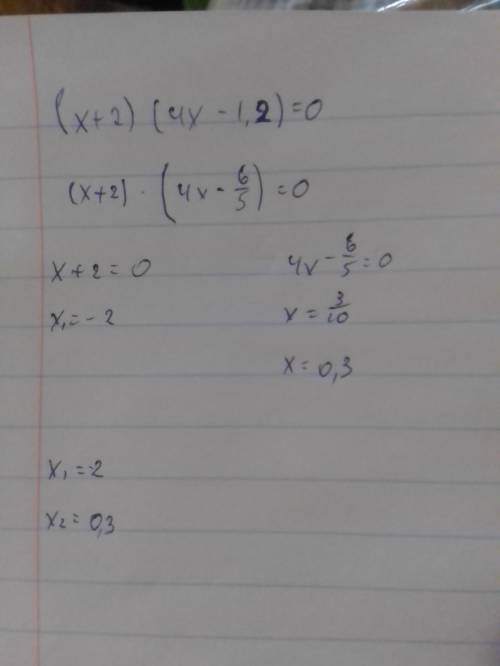 (x+2) (4x - 1,2) = 0
(x+2) · (4x - 6/5) = 0
x + 2 = 0
x₁ = - 2
4x - 6/5 = 0
x = 3/10
x = 0,3
x₁ = -2
x₂ = 0,3